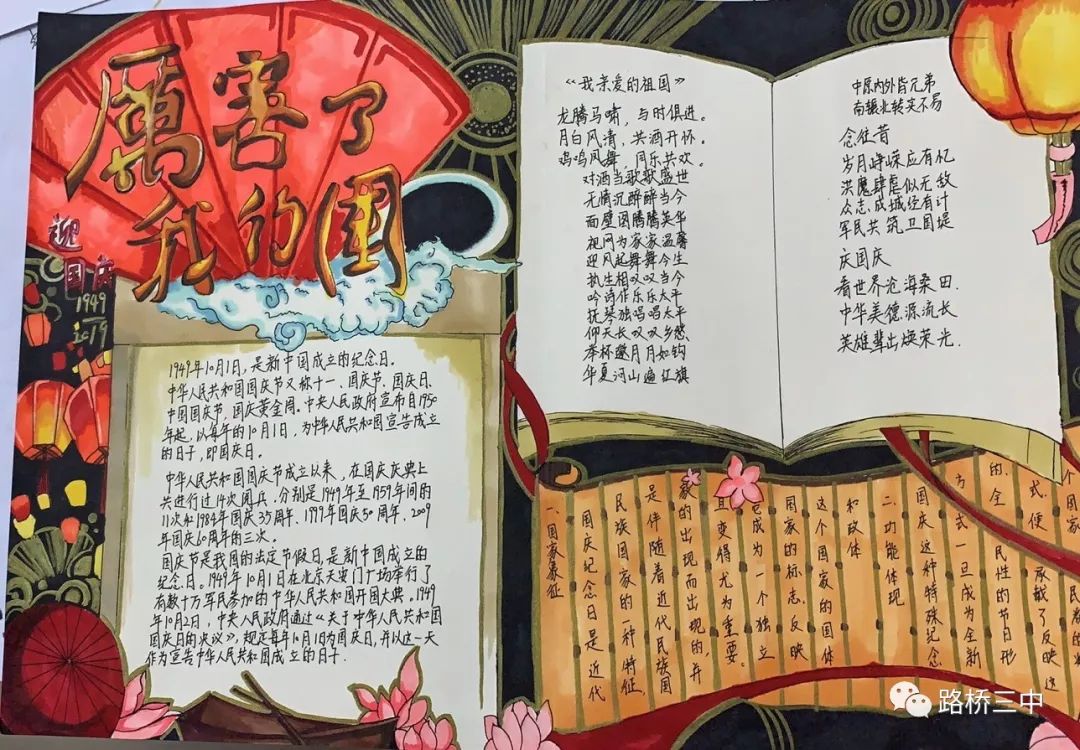 厲害了
我的國
迎
国庆
1949
2019
1949年10月1日,是新中国成立的纪念日。
中华人民共和国国庆节又称十一、国庆节、国庆日、
中国国庆节、国庆黄金周。中央人民政府宣布自1950
年起,以每年的10月1日,为中华人民共和国宣告成立
的日子,即国庆日。
中华人民共和国国庆节成立以来,在国庆庆典上
共进行过14次阅兵.分别是1949年至1959年间的
11次和1984年国庆35周年、1999年国庆50周年、2009
年国庆60周年的三次。
国庆节是我国的法定节假日,是新中国成立的
纪念日。1949年10月1日在北京天安门广场举行了
有数十万军民参加的中华人民共和国开国大典。1949
年10月2日,中央人民政府通过《关于中华人民共和国
国庆日的决议》,规定每年10月1日为国庆日,并以这一天
作为宣告中华人民共和国成立的日子.
《我亲爱的祖国》
龙腾马啸,与时俱进。
月白风清,共酒开怀。
鸡鸣凤舞,同乐共欢。
对酒当歌歌盛世
无需沉醉醉当今
面壁图腾腾英华
视网为家家温馨
迎风起舞舞今生
执生相叹叹当今
吟诗作乐乐太平
抚琴独唱唱太平
仰天长叹叹乡愁
举杯邀月月如钩
华夏河山遍红旗
中原内外皆兄弟
南辕北转实不易
念往昔
岁月峥嵘应有忆
洪魔肆虐似无敌
众志成城径有计
军民共筑卫国堤
庆国庆
看世界沧海桑田.
中华美德源流长
英雄辈出焕荣光.
一、国家象征
国庆纪念日是近代
民族国家的一种特征,
是伴随着近代民族国
家的出现而出现的,并
且变得尤为重要。
它成为一个独立
国家的标志,反映
这个国家的国体
和政体
二、功能体现
国庆这种特殊纪念
方式一旦成为全新
的、全民性的节日形
式,便承载了反映这
路桥三中